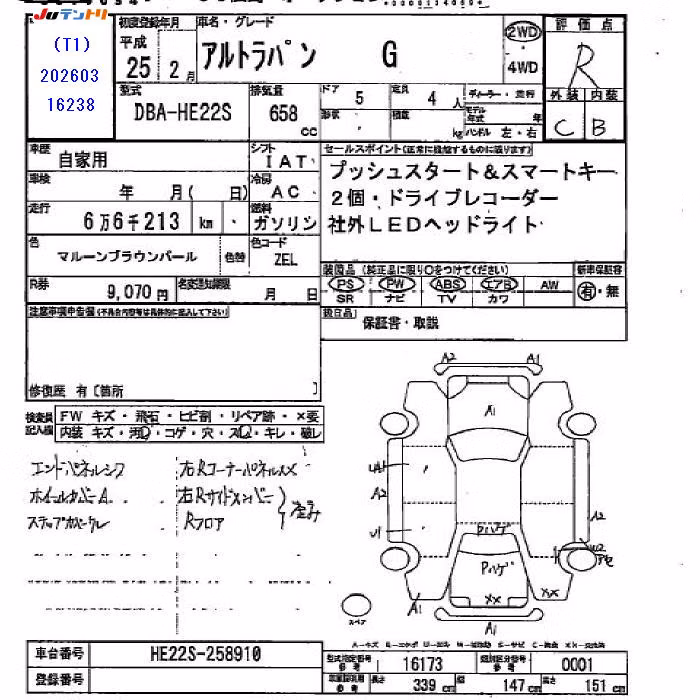 JUテントリ
(T1)
202603
16238
初度登録年月
平成
25年 2月
車名・グレード
アルトラパン G
2WD
4WD
評価点
R
外装 内装
C B
型式
DBA-HE22S
排気量
658
cc
ドア
5
定員
4人
形状
積載
kg
ディーラー・並行
モデル年式 年
ハンドル 左・右
車歴
自家用
シフト
IAT
車検
年 月( 日)
冷房
AC
走行
6万6千213 km
燃料
ガソリン
色
マルーンブラウンパール
色替
色コード
ZEL
R券
9,070円
名変通知期限
月 日
セールスポイント(正常に機能するものに限ります)
プッシュスタート&スマートキー
2個・ドライブレコーダー
社外LEDヘッドライト
装備品(純正品に限り○をつけてください)
新車保証書
PS PW ABS エアB AW
SR ナビ TV カワ
有・無
後日品
保証書・取説
注意事項申告欄(不具合内容等は具体的に記入して下さい)
修復歴 有〔箇所 〕
検査員記入欄
FW キズ・飛石・ヒビ割・リペア跡・×要
内装 キズ・汚レ・コゲ・穴・スレ・キレ・破レ
エンドパネルシワ
ホイールカバーA
ステップカバーケレ
右Rコーナーパネル××
右Rサイドメンバー
Rフロア
歪み
A2
A1
A1
A2
A2
U1
W2
Pハゲ
Pハゲ
××
××
A1
A1
スペア
車台番号
HE22S-258910
登録番号
型式指定番号
参考
16173
類別区分番号
参考
0001
参考
長さ 339cm
幅 147cm
高さ 151cm